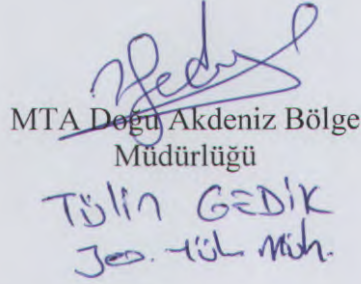 MTA Doğu Akdeniz Bölge
Müdürlüğü
Tülin GEDİK
Jeo. Yük. Müh.